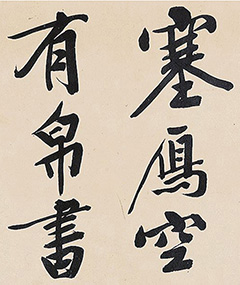 塞鴈空
有帛書